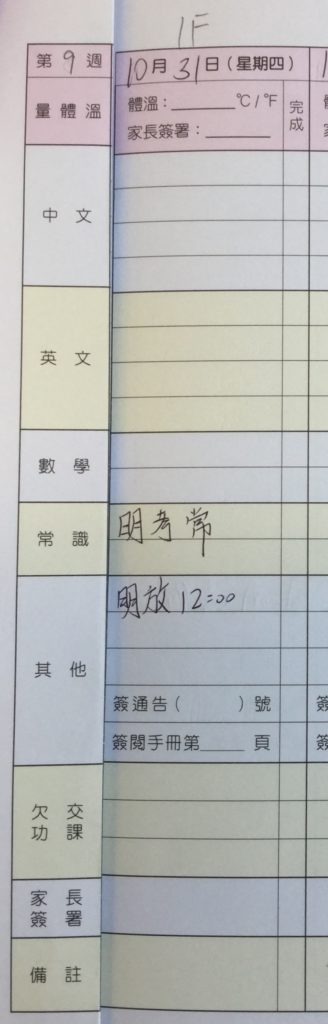 1F
第9週
10月31日(星期四)
量體溫
體溫:______℃/℉
家長簽署:______
完成
中文
英文
數學
常識
明考常
其他
明放12:00
簽通告(    )號
簽閱手冊第____頁
欠交功課
家長簽署
備註